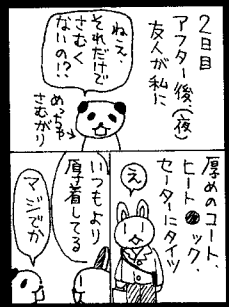 2日目
アフター後(夜)
友人が私に
ねえ、
それだけで
さむく
ないの!?
めっちゃ
さむがり
厚めのコート、
ヒート●ック、
セーターにタイツ
え
いつもより
厚着してる
マジでか